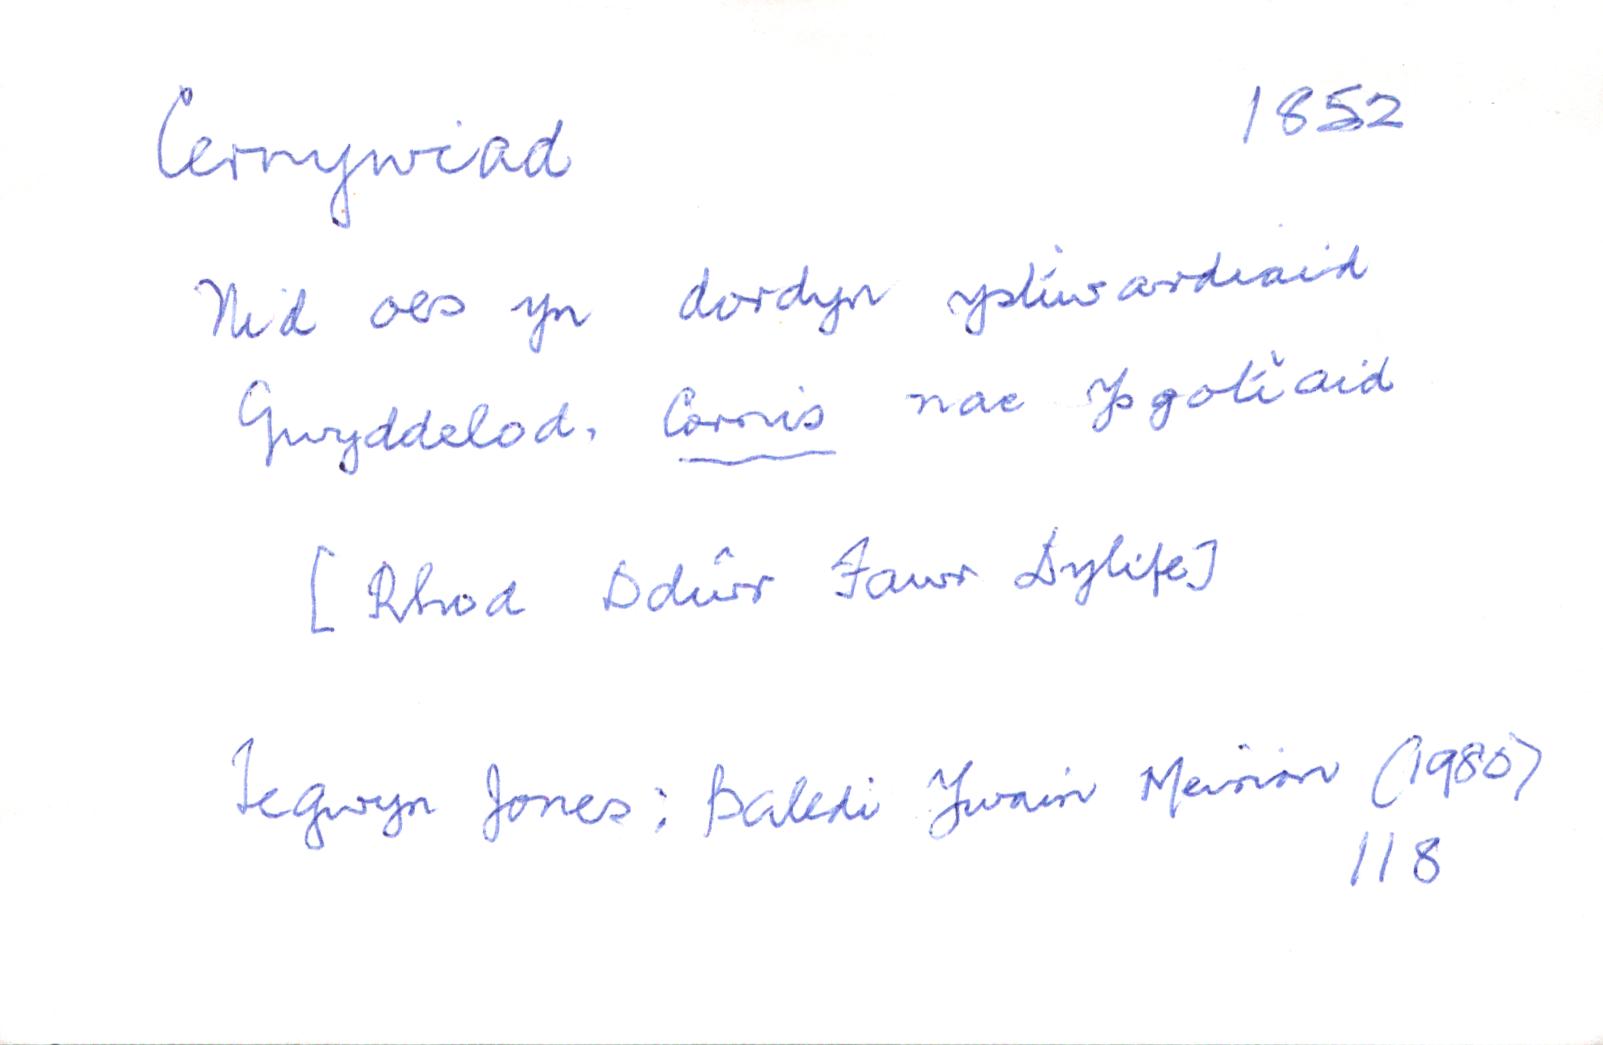 Cernywiad 1852
Nid oes yn dordyn ystiwardiaid
Gwyddelod, Cornis nac Ysgotiaid
[Rhod Ddŵr Fawr Dylife]
Tegwyn Jones; Baledi Ywain Meirion (1980)
118